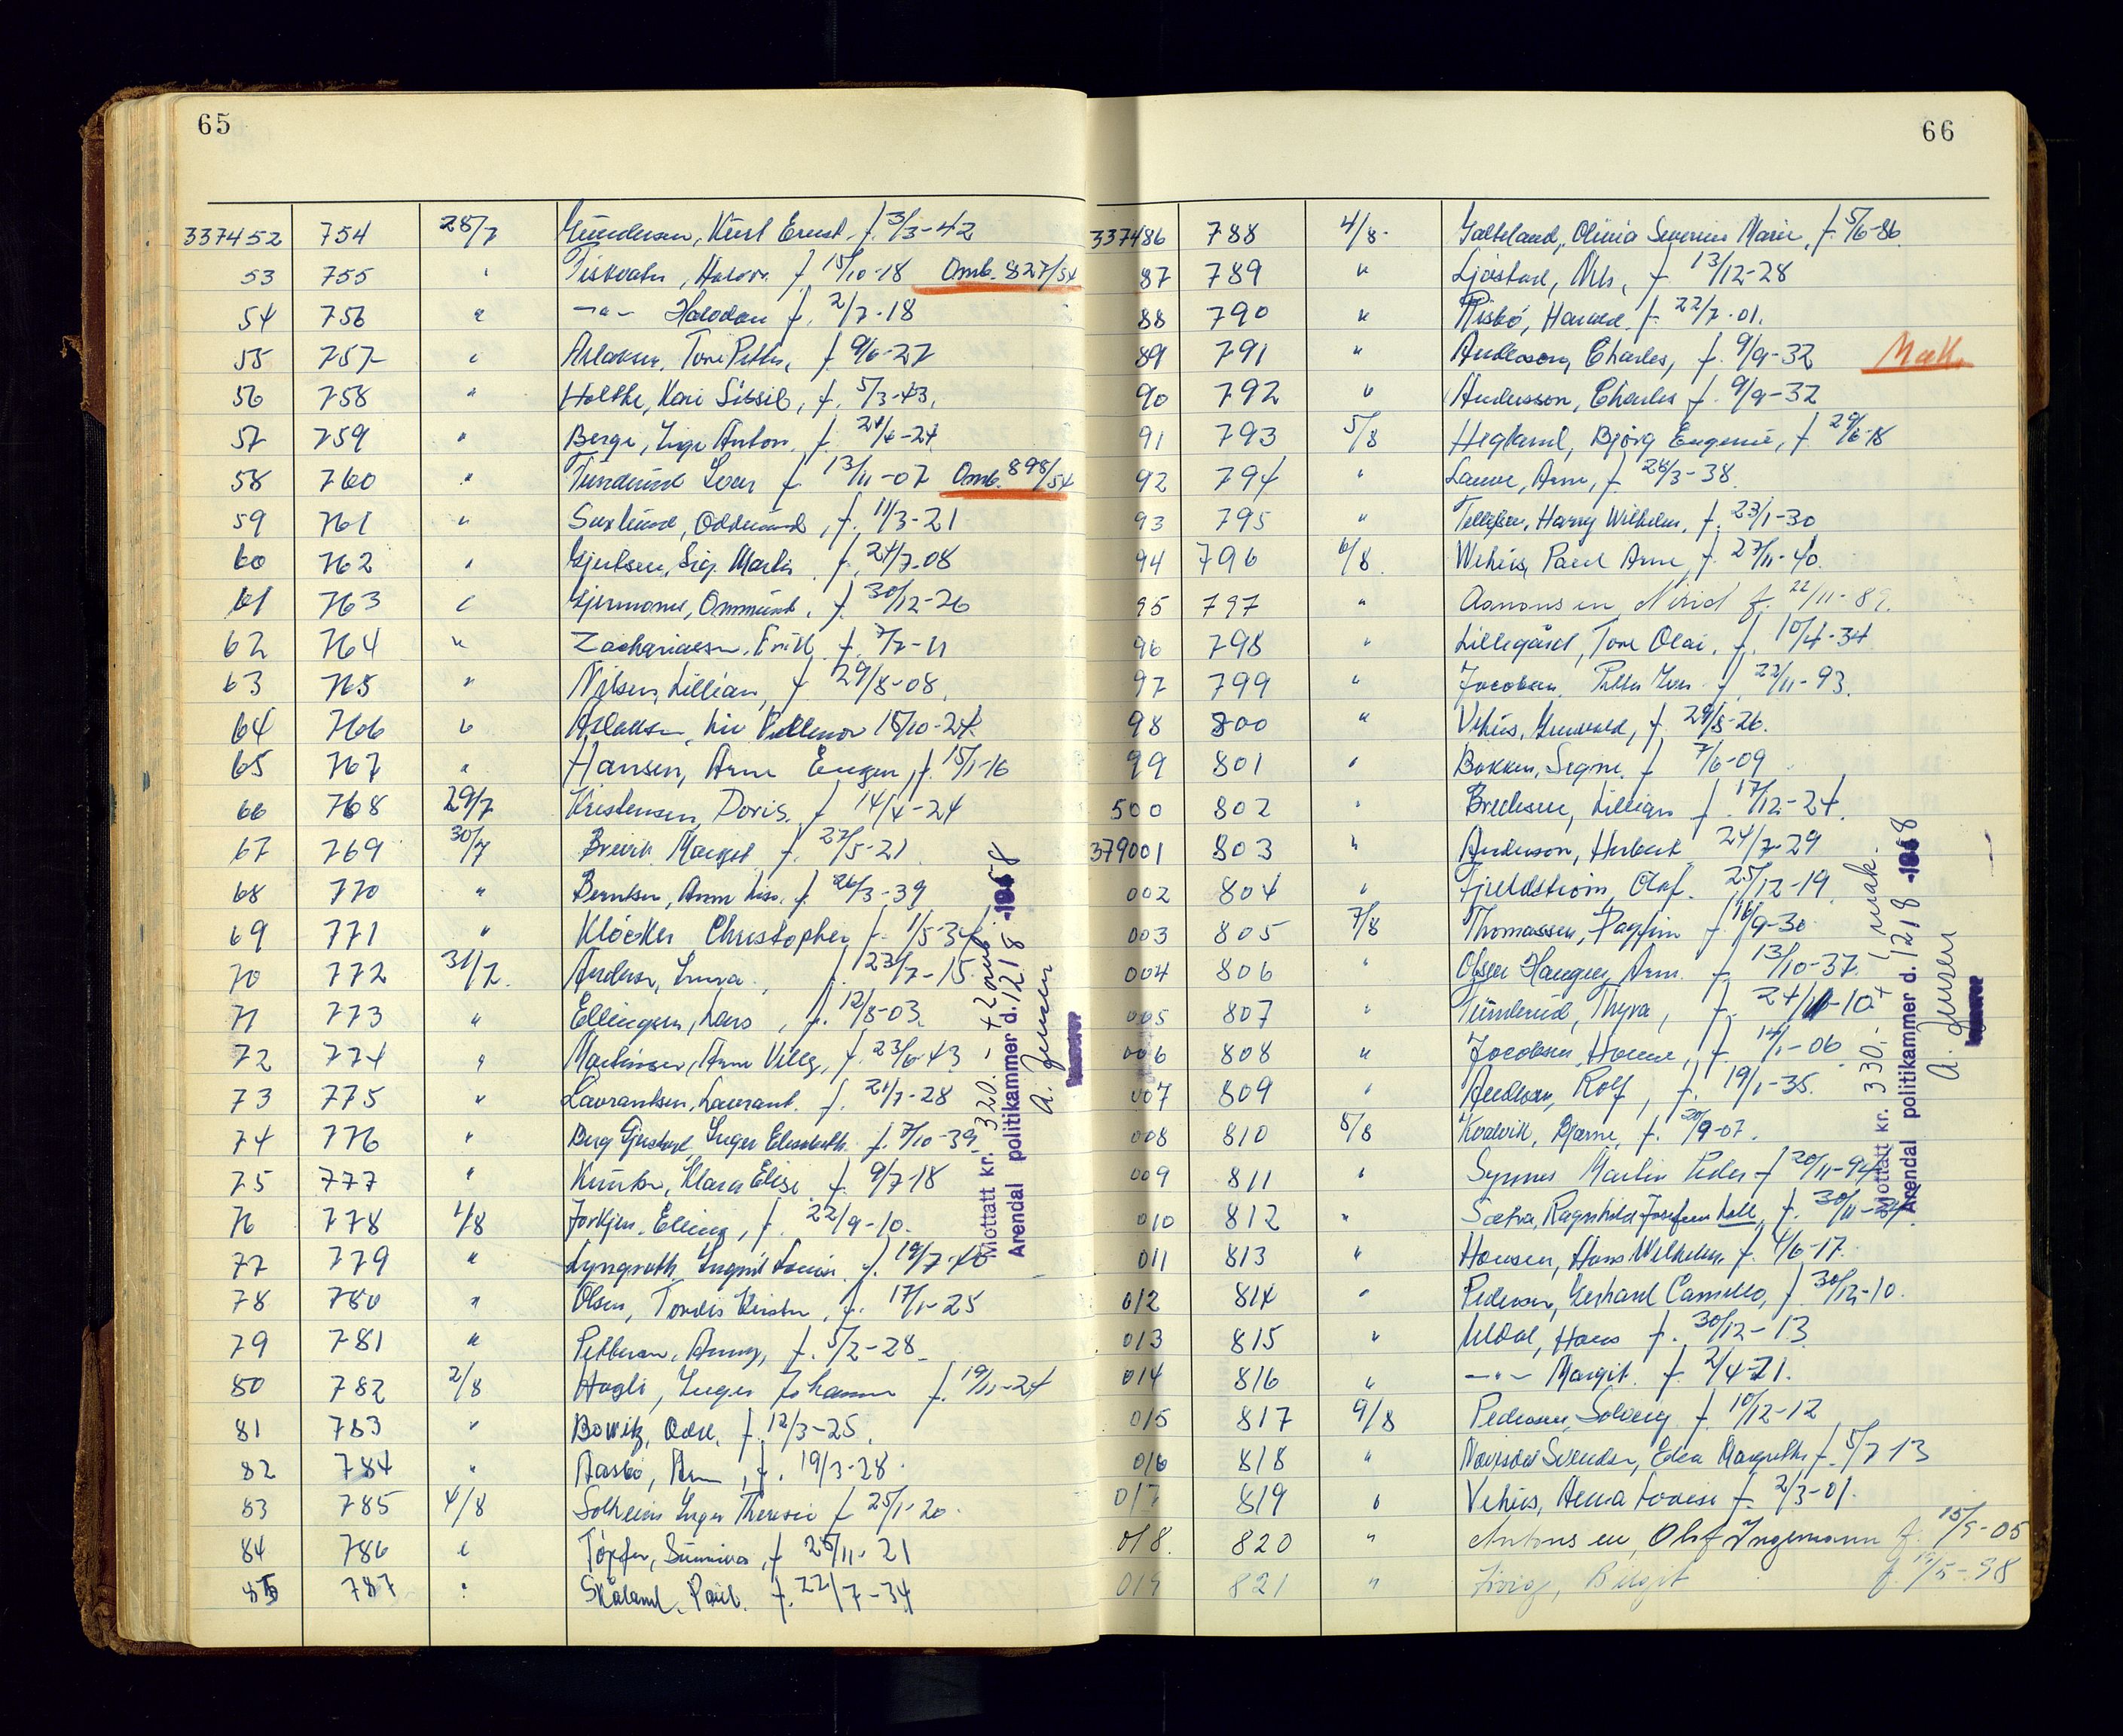 65
337452 754 28/7 Gundersen, Kurt Ernst f. 3/3-42
53 755 " Tiskvatn, Halvor. f 15/10-18 Omb. 827/54
54 756 " —"— Halvdan f. 2/7-18
55 757 " Aslaksen, Tore Petter, f. 9/6-27
56 758 " Holthe, Kari Sissil, f. 5/3-43.
57 759 " Berge, Inge Anton, f. 24/4-24
58 760 " Tunderud Ivar f 13/11-07 Omb. 898/54
59 761 " Saxlund, Oddmund, f. 11/3-21
60 762 " Gjulsen, Sig. Martin f. 24/7-08
61 763 " Gjermones, Ommund, f. 30/12-26
62 764 " Zachariassen, f. 7/7-11
63 765 " Nilsen, Lillian, f 29/8-08.
64 766 " Aslaksen, Liv Vellemor 15/10-24.
65 767 " Hansen, Arne Eugen, f. 15/1-16
66 768 29/7 Kristensen, Doris. f 14/4-24
67 769 30/7 Breivik Margit f. 27/5-21
68 770 " Berntsen, Anne Lise. f. 26/3-39
69 771 " Klöcker Christopher f. 1/5-34
70 772 31/7. Andersen, f. 23/7-15
71 773 " Ellingsen, Lars, f. 12/8-03.
72 774 " Martinsen, Arne Villy, f. 23/6-43
73 775 " Lavrantsen, Lavrant. f. 21/7-28
74 776 " Berg Gjerstad, Inger Elisabeth. f. 7/10-39
75 777 " Klara Elise f. 9/7-18
76 778 1/8 Torkjen, Elling, f. 22/9-10.
77 779 " Lyngroth Ingrid Louise. f. 19/7-40
78 780 " Olsen, Tordis Kirsten, f. 17/1-25
79 781 " Petterson, Anny, f. 5/2-28
80 782 2/8 Hagli, Inger Johanne f. 19/11-24
81 783 " Bowitz, Odd, f. 12/3-25.
82 784 " Aasbø, Arne, f. 19/3-28.
83 785 4/8 Solheim Inger Theresie f 25/1-20.
84 786 " Töpfer, Sunniva, f 25/11-21
85 787 " Skåland, Paul. f. 22/7-34
Mottatt kr. 320.- + 2 omb.
Arendal politikammer d. 12/8-1958
A. Jensen
66
337486 788 4/8. Galteland, Olivia Severine Marie, f. 5/6-86.
87 789 " Ljøstad, Nils, f. 13/12-28
88 790 " Risbö, Harald. f. 22/7-01.
89 791 " Andersson, Charles, f. 9/9-32 Mak.
90 792 " Andersson, Charles f. 9/9-32
91 793 5/8 Hegland, Bjørg Eugenie, f. 29/6-18
92 794 " Lauve, Arne, f. 26/3-38.
93 795 " Tellefsen, Harry Wilhelm, f. 23/1-30
94 796 6/8. Vehus, Paul Arne, f. 27/11-40.
95 797 " f. 22/11-89.
96 798 " Lillegård, Tore Olai, f. 10/4-34
97 799 " Jacobsen, Petter Iver f. 22/11-93.
98 800 " Vehus, Gunvald, f. 29/8-26.
99 801 " Bakken, Signe. f 7/6-09
500 802 " Bredesen, Lillian f. 17/12-24.
379001 803 " Anderson, Herbert 24/7-29
002 804 " Fjeldström, Olaf. 25/12-19.
003 805 7/8 Thomassen, Dagfinn f. 16/9-30
004 806 " Olsen Haugen, Arne. f. 13/10-37.
005 807 " Tunderud, Thyra, f. 24/11-10
006 808 " Jacobsen, f. 14/1-06
007 809 " Andersen, Rolf, f. 19/1-35.
008 810 8/8 Kvalvik, Bjarne, f. 20/9-07.
009 811 " Synnes Martin Peder f 20/11-94
010 812 " Sætra, Ragnhild Josefine Koll, f. 30/11-24.
011 813 " Hansen, Hans Wilhelm, f. 4/6-17.
012 814 " Pedersen, Gerhard Camillo, f. 30/12-10.
013 815 " Uldal, Hans f. 30/12-13
014 816 " —"— Margit. f. 2/4-21.
015 817 9/8 Pedersen, Solveig f 10/12-12
016 818 " Svendsen, Edea Margrethe f. 5/7 13
017 819 " Vehus, Anna Lovise f. 2/3-01.
018. 820 " Antonsen, Olaf Ingemann f. 15/9-05
019 821 " Birgit f. 12/5-98
Mottatt kr. 330.- + 1 mak.
Arendal politikammer d. 12/8-1958
A. Jensen